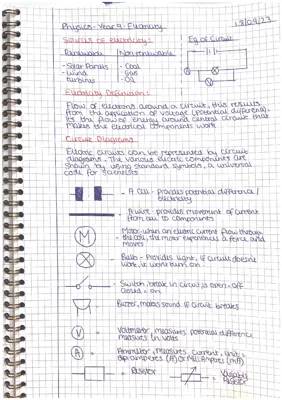 Physics - Year 9 - Electricity
18/09/23
Sources of electricity:
Eg of Circuit
Renewable
Non renewable
- Solar Panels
- Coal
- Wind
- Gas
turbines
- Oil
Electricity Definition:
Flow of electrons around a circuit, this results
from the application of voltage (potential difference).
Its the flow of energy around circuit that
makes the electrical components work
Circuit Diagrams
Electric circuits can be represented by circuit
diagrams. The various electric components are
shown by using standard symbols, a universal
code for scientists
- A Cell - provides potential difference /
electricity
A wire - provides movement of current
from cell to components
M
Motor when an electric current flow through
the coil, the motor experiences a force and
moves
Bulb - Provides light, if circuit doesnt
work, it wont turn on
- Switch, break in circuit is open - off
closed = on
Buzzer, makes sound if circuit
V
Voltmeter, measures potential difference
measures in volts
A
Ammeter, measures current, units
amperes (A) or Milli Amperes (mA)
Resistor
Variable
Resistor